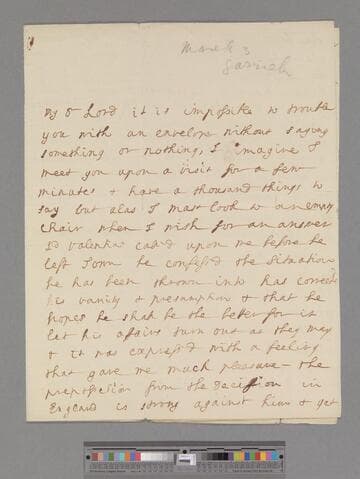 March 3
My Dr Lord it is impossible to trouble
you with an envelope without saying
something or nothing, I imagine I
meet you upon a visit for a few
minutes & have a thousand things to
say but alas I must look to an empty
Chair when I wish for an answer
Ld Valentia call'd upon me before he
left Town he confess'd the Situation
he has been thrown into has corrected
his vanity & presumption & that he
hopes he shall be the better for it
let his affairs turn out as they may
& it was express'd with a feeling
that gave me much pleasure - the
prepossession from the Decission in
England is strong against him & yet